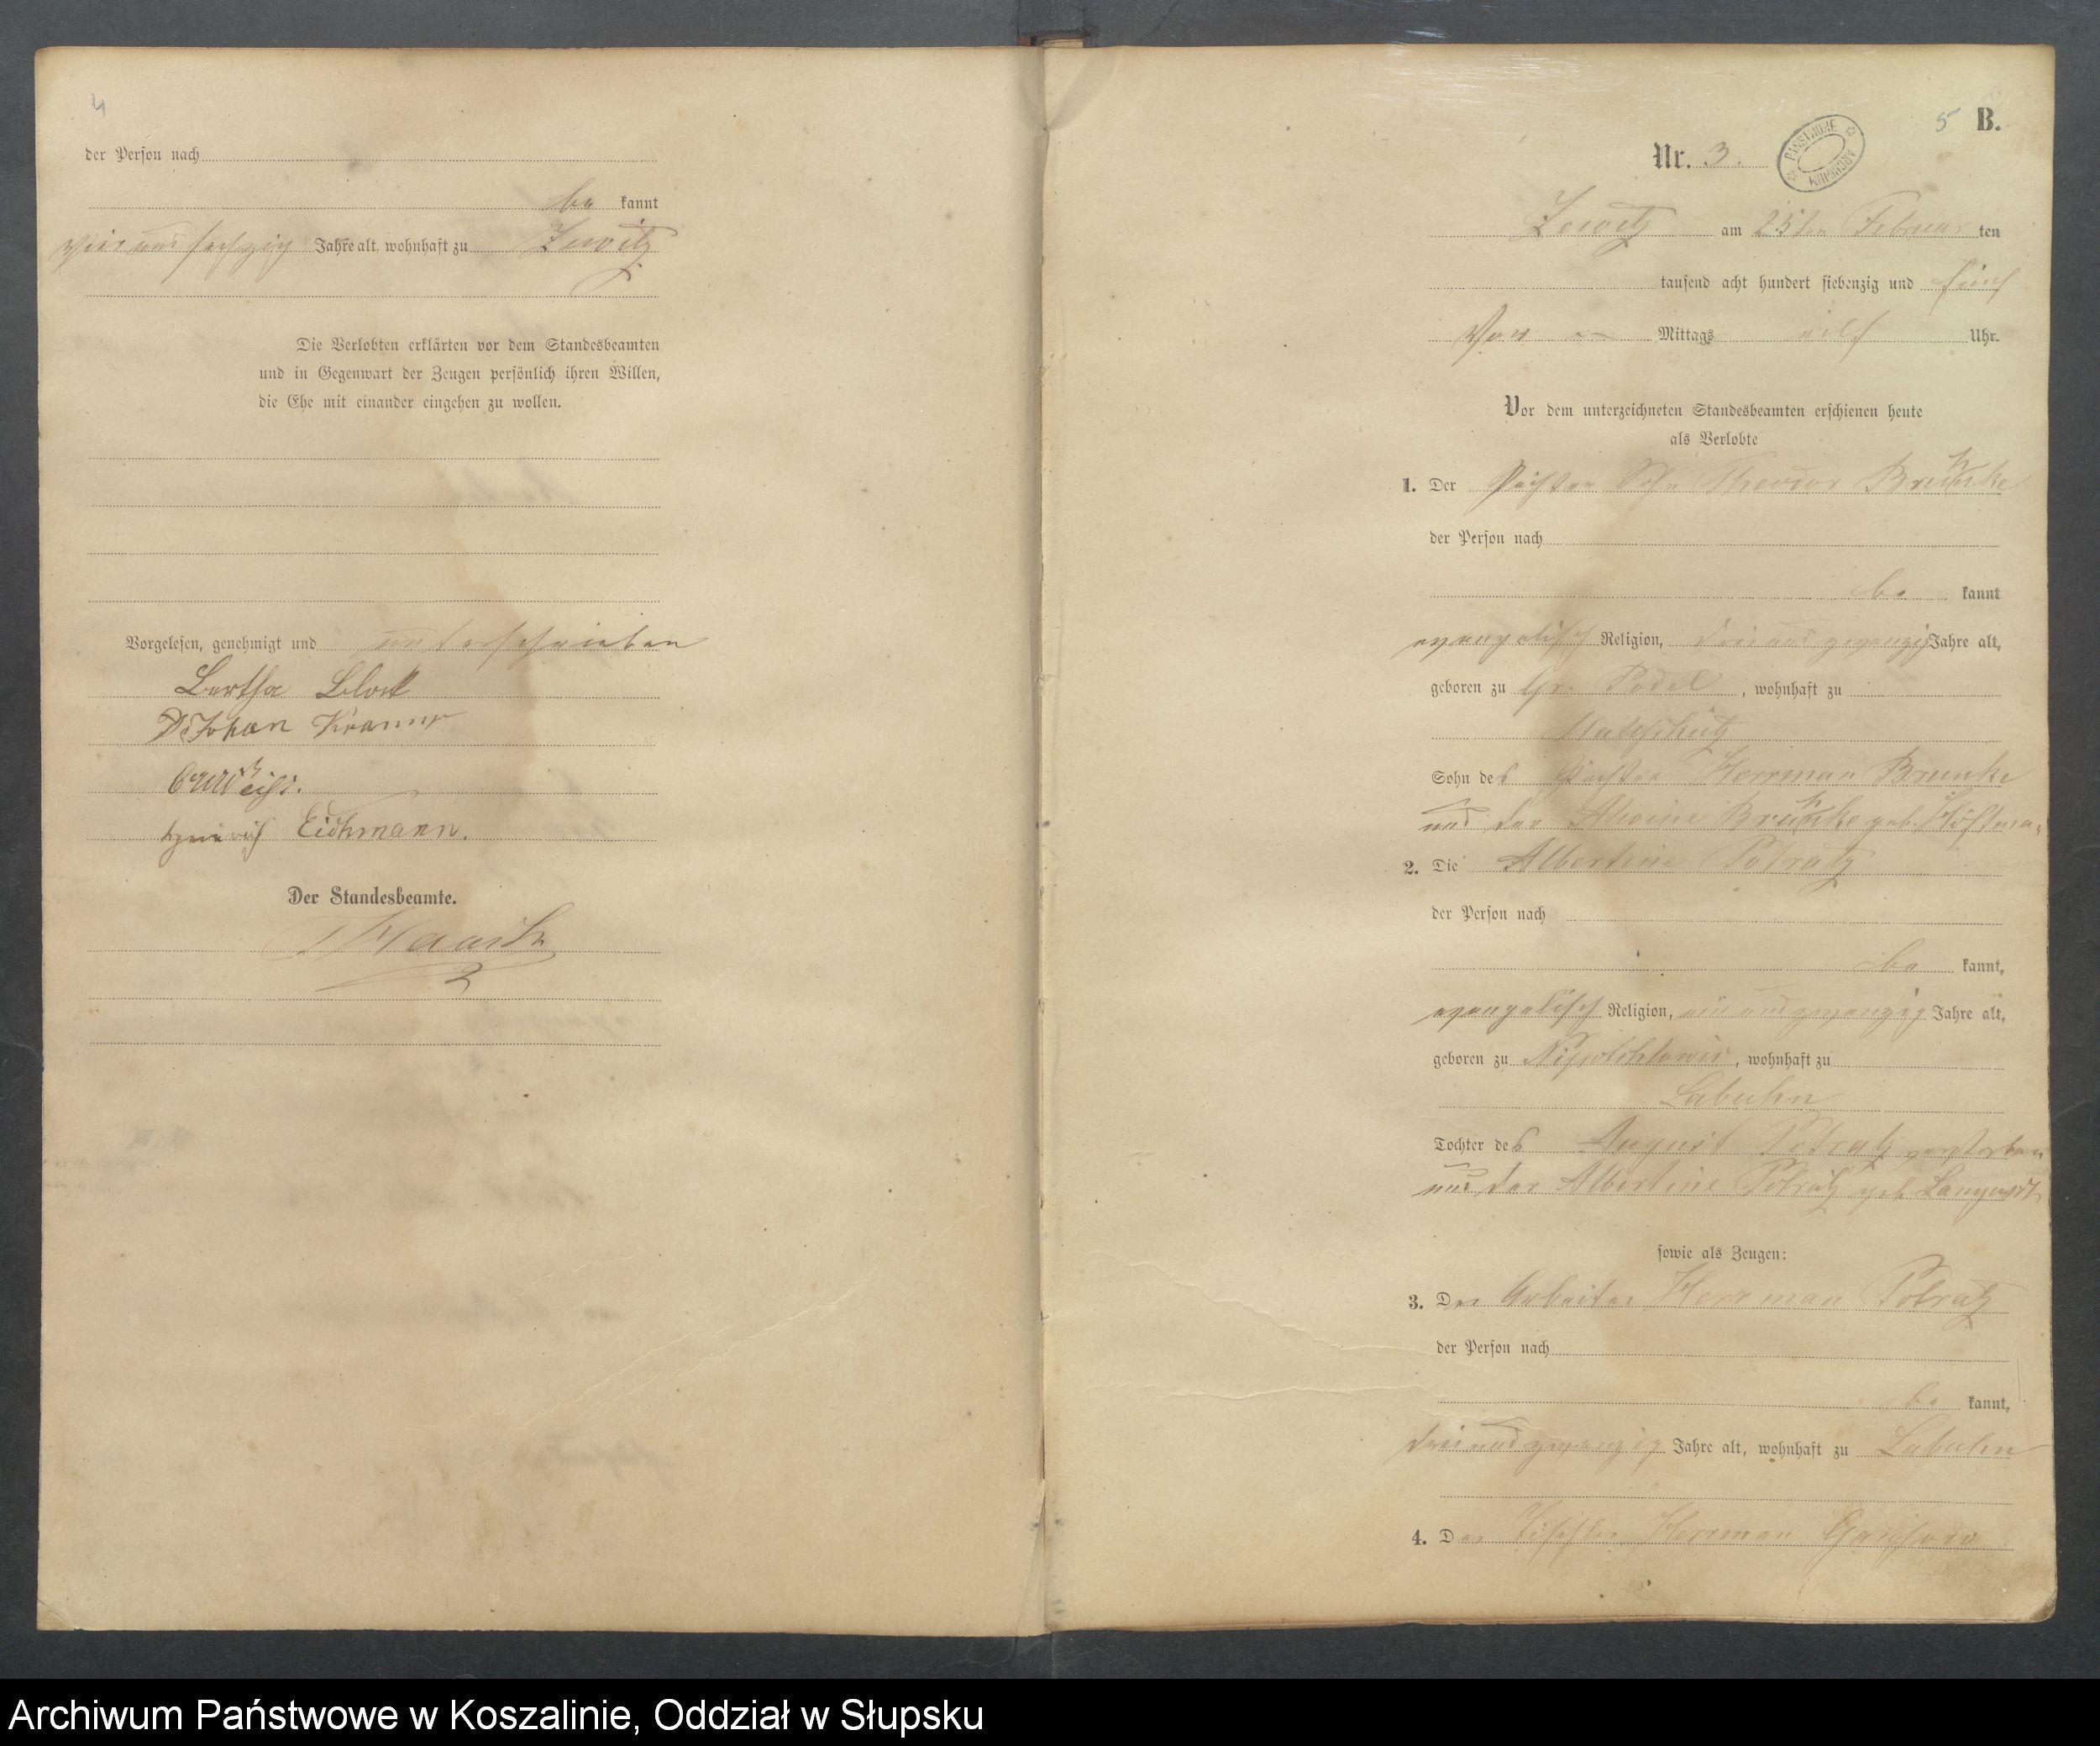 4
der Person nach
be kannt
vier und sechzig Jahre alt, wohnhaft zu Zewitz
Die Verlobten erklärten vor dem Standesbeamten
und in Gegenwart der Zeugen persönlich ihren Willen,
die Ehe mit einander eingehen zu wollen.
Vorgelesen, genehmigt und unterschrieben
Bertha Block
Johan Kramer
Heinrich Eichmann.
Der Standesbeamte.
5 B.
Nr. 3.
PAŃSTWOWE ARCHIWUM
Zewitz am 25ten Februar ten
tausend acht hundert siebenzig und fünf
Vor Mittags elf Uhr.
Vor dem unterzeichneten Standesbeamten erschienen heute
als Verlobte
1. Der Pächter Sohn Theodor
der Person nach
be kannt
evangelisch Religion, drei und zwanzig Jahre alt,
geboren zu Gr. Podel, wohnhaft zu
Sohn des Pächter Herrman Brunke
und der geb.
2. Die Albertine Potratz
der Person nach
be kannt,
evangelisch Religion, ein und zwanzig Jahre alt,
geboren zu, wohnhaft zu
Labuhn
Tochter des August Potratz verstorben
und der Albertine Potratz geb.
sowie als Zeugen:
3. Der Arbeiter Herrman Potratz
der Person nach
be kannt,
drei und zwanzig Jahre alt, wohnhaft zu Labuhn
4. Der Tischler Herrman
Archiwum Państwowe w Koszalinie, Oddział w Słupsku